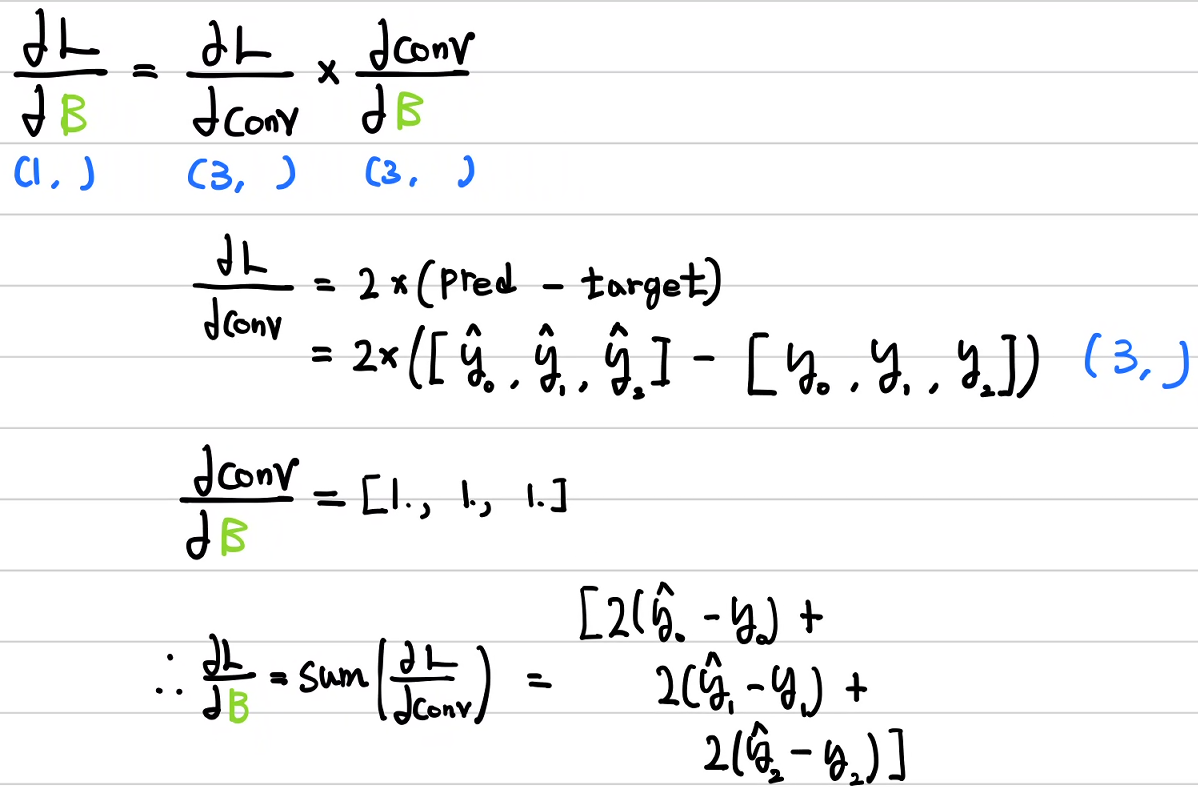 ∂L/∂B = ∂L/∂Conv × ∂Conv/∂B
(1, ) (3, ) (3, )
∂L/∂Conv = 2 × (pred - target)
= 2 × ([ŷ₀, ŷ₁, ŷ₂] - [y₀, y₁, y₂]) (3, )
∂Conv/∂B = [1., 1., 1.]
∴ ∂L/∂B = sum(∂L/∂Conv) = [2(ŷ₀ - y₀) +
2(ŷ₁ - y₁) +
2(ŷ₂ - y₂)]